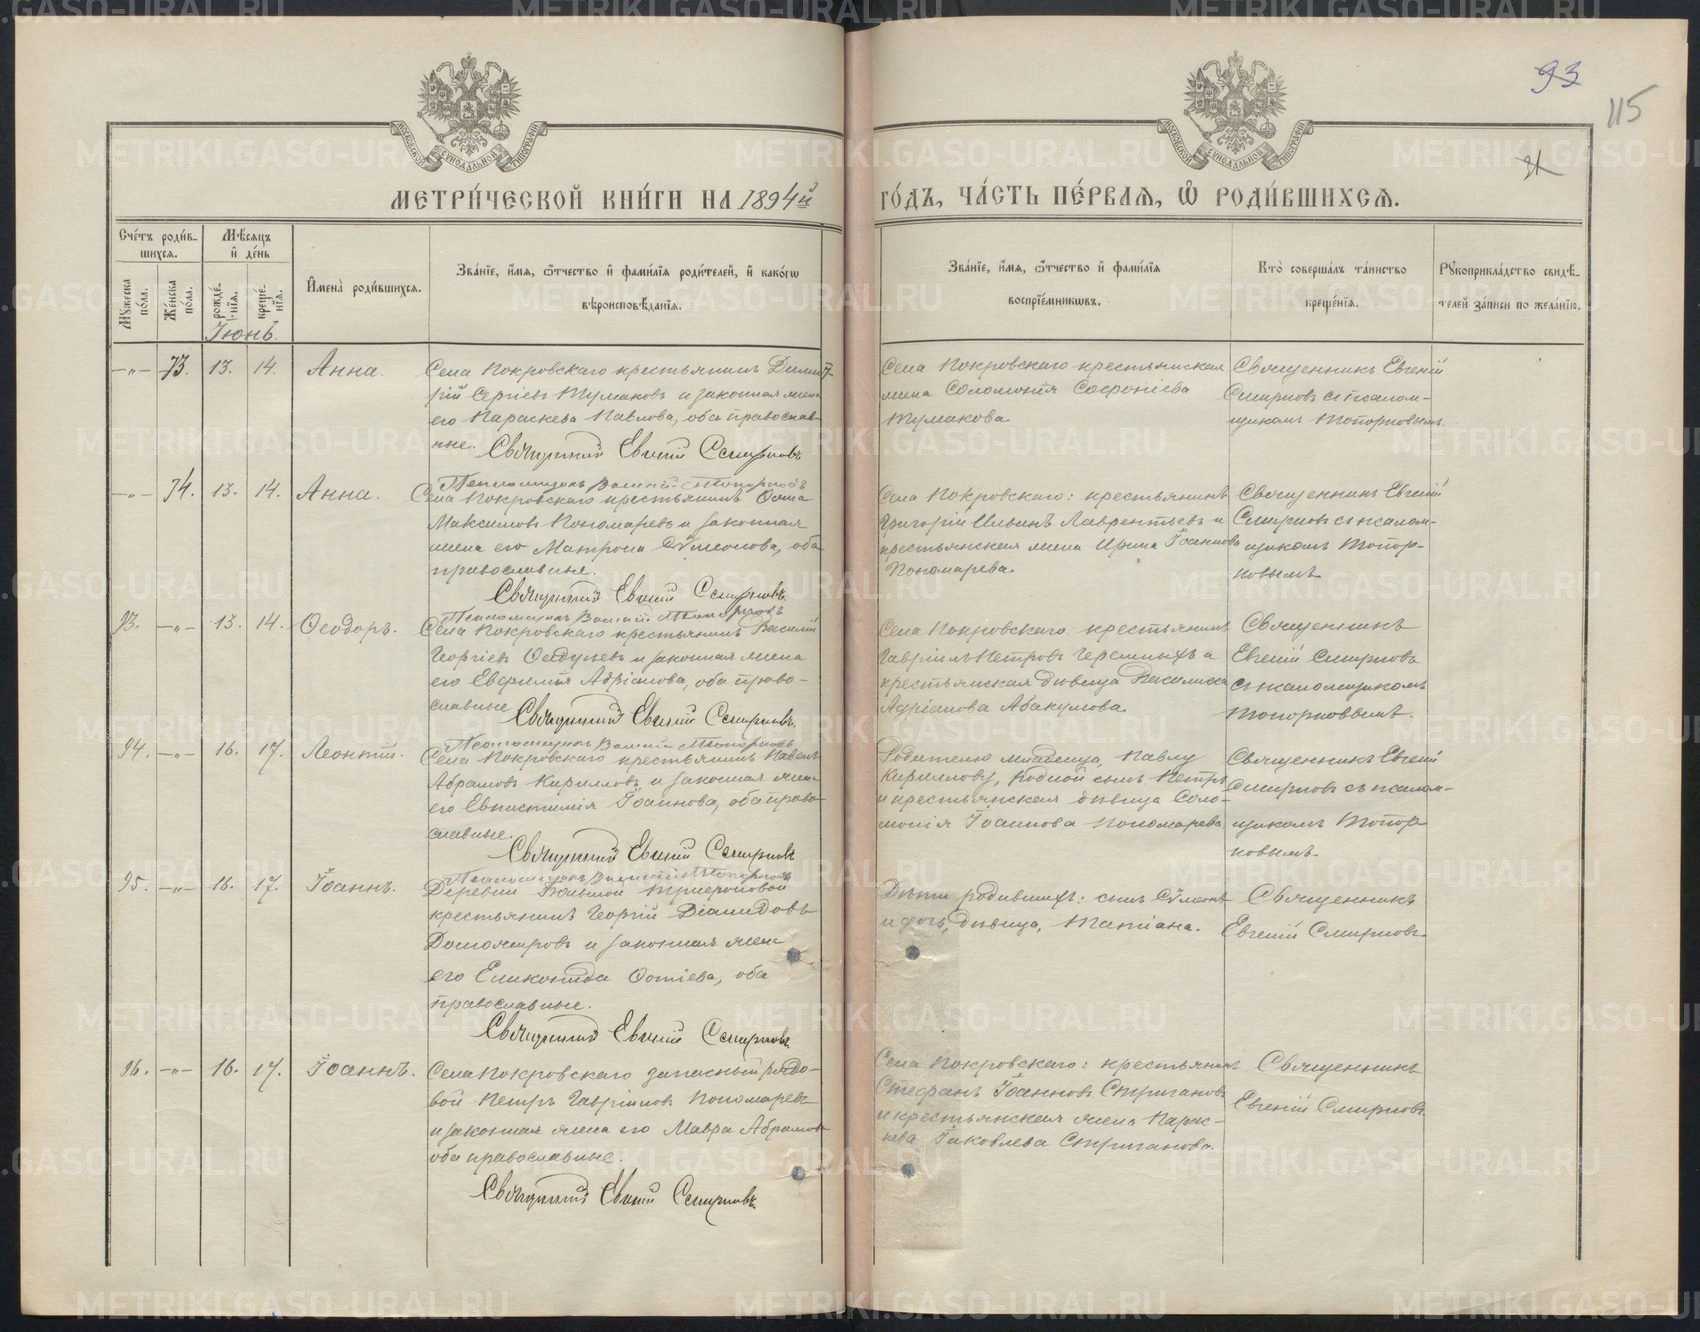 93
115
МОСКОВСКОЙ СѴНОДАЛЬНОЙ ТИПОГРАФІИ
МОСКОВСКОЙ СѴНОДАЛЬНОЙ ТИПОГРАФІИ
МЕТРИ́ЧЕСКОЙ КНИ́ГИ НА 1894й
ГО́ДЪ, ЧА́СТЬ ПЕ́РВАѦ, Ѡ҆ РОДИ́ВШИХСѦ.
Сче́тъ роди́в-
шихсѧ.
Му́жеска по́ла.
Же́нска по́ла.
Мѣ́сѧцъ
и҆ де́нь
рожде́-
нїѧ.
креще́-
нїѧ.
И҆мена̀ роди́вшихсѧ.
Зва́нїе, и҆́мѧ, ѻ҆́тчество и҆ фами́лїѧ роди́телей, и҆ како́гѡ
вѣроисповѣ́данїѧ.
Зва́нїе, и҆́мѧ, ѻ҆́тчество и҆ фами́лїѧ
воспрїе́мникѡвъ.
Кто̀ соверша́лъ та́инство
креще́нїѧ.
Рꙋкоприкла́дство свидѣ́-
телей за́писи по жела́нїю.
Іюнь.
-"- 73. 13. 14. Анна.
Села Покровскаго крестьянинъ Димит-
рій Сергіевъ Тумаковъ и законная жена
его Параскева Павлова, оба православ-
ные. Священникъ Евгеній Смирновъ
Псаломщикъ Василій Топорковъ
Села Покровскаго крестьянская
жена Соломонія Софроніева
Тумакова.
Священникъ Евгеній
Смирновъ съ псалом-
щикомъ Топорковымъ
-"- 74. 13. 14. Анна.
Села Покровскаго крестьянинъ Ѳома
Максимовъ Пономаревъ и законная
жена его Матрона Сѵмеонова, оба
православные.
Священникъ Евгеній Смирновъ
Псаломщикъ Василій Топорковъ
Села Покровскаго: крестьянинъ
Григорій Ильинъ Лаврентьевъ и
крестьянская жена Ирина Іоаннова
Пономарева.
Священникъ Евгеній
Смирновъ съ псалом-
щикомъ Топор-
ковымъ
93. -"- 13. 14. Ѳеодоръ.
Села Покровскаго крестьянинъ Василій
Георгіевъ и законная жена
его Евфимія Адріанова, оба право-
славные Священникъ Евгеній Смирновъ
Псаломщикъ Василій Топорковъ
Села Покровскаго: крестьянинъ
Гавріилъ Петровъ Черемныхъ и
крестьянская дѣвица Василисса
Адріанова Абакумова.
Священникъ
Евгеній Смирновъ
съ псаломщикомъ
Топорковымъ.
94. -"- 16. 17. Леонтій.
Села Покровскаго крестьянинъ Павелъ
Абрамовъ Кирилловъ и законная жена
его Евпистимія Іоаннова, оба право-
славные.
Священникъ Евгеній Смирновъ
Псаломщикъ Василій Топорковъ
Родителю младенца, Павлу
Кириллову, родной сынъ Петръ
и крестьянская дѣвица Соло-
монія Іоаннова Пономарева
Священникъ Евгеній
Смирновъ съ псалом-
щикомъ Топор
ковымъ.
95. -"- 16. 17. Іоаннъ.
Деревни Большой Трифоновой
крестьянинъ Георгій Діамидовъ
Доможировъ и законная жена
его Еликонида Фотіева, оба
православные.
Священникъ Евгеній Смирновъ
Дѣти родившихъ: сынъ Сѵмеонъ
и дочь, дѣвица, Татіана.
Священникъ
Евгеній Смирновъ.
96. -"- 16. 17. Іоаннъ.
Села Покровскаго запасный рядо-
вой Петръ Гавриловъ Пономаревъ
и законная жена его Мавра Абрамова
оба православные.
Священникъ Евгеній Смирновъ
Села Покровскаго: крестьянинъ
Стефанъ Іоанновъ Стригановъ
и крестьянская жена Парас-
кева Іаковлева Стриганова.
Священникъ
Евгеній Смирновъ
METRIKI.GASO-URAL.RU